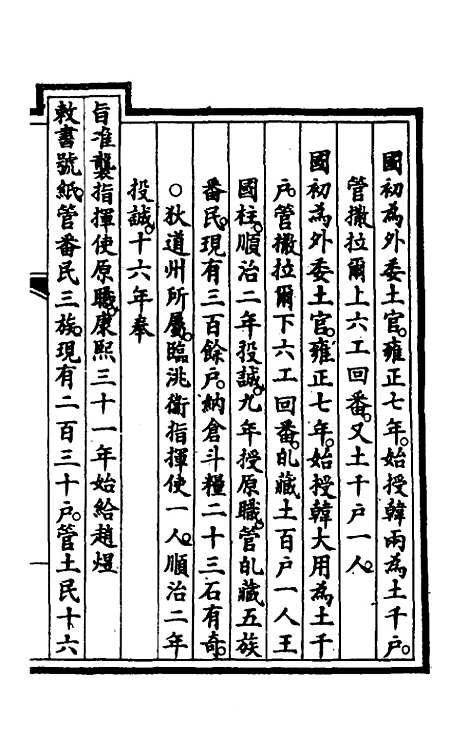 國初為外委土官。雍正七年。始授韓兩為土千戶。
管撒拉爾上六工回番。又土千戶一人。
國初為外委土官。雍正七年。始授韓大用為土千
戶。管撒拉爾下六工回番。癿藏土百戶一人王
國柱。順治二年投誠。九年授原職。管癿藏五族
番民。現有三百餘戶。納倉斗糧二十三石有奇。
○狄道州所屬。臨洮衛指揮使一人。順治二年
投誠。十六年奉
旨准襲指揮使原職。康熙三十一年始給趙煜
敕書號紙。管番民三族。現有二百三十戶。管土民十六